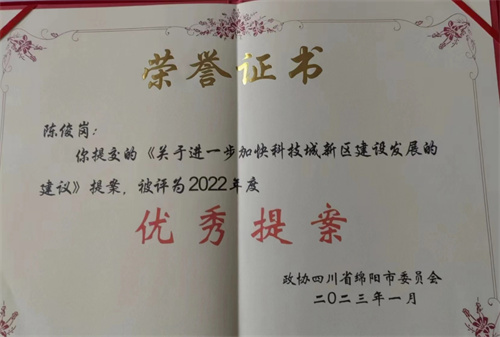 荣誉证书
陈俊岗：
你提交的《关于进一步加快科技城新区建设发展的
建议》提案，被评为2022年度
优秀提案
政协四川省绵阳市委员会
二〇二三年一月